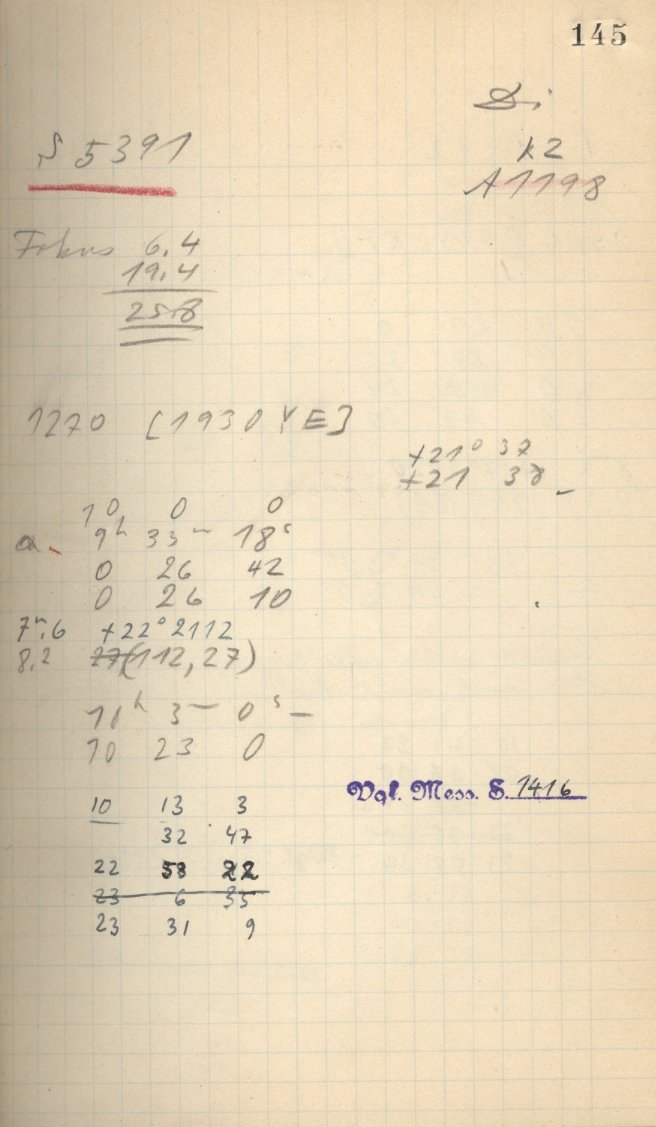 145
Di
S 5391
K2
A1198
Fokus 6.4
19.4
25.8
1270 [1930 YE]
+21° 37
+21 38
10 0 0
a. 9h 33m 18s
0 26 42
0 26 10
7m.6 +22° 2112
8.2 27(112, 27)
10h 3m 0s –
10 23 0
10 13 3
Vgl. Mess. S. 1416
32 47
22 58 22
23 6 35
23 31 9